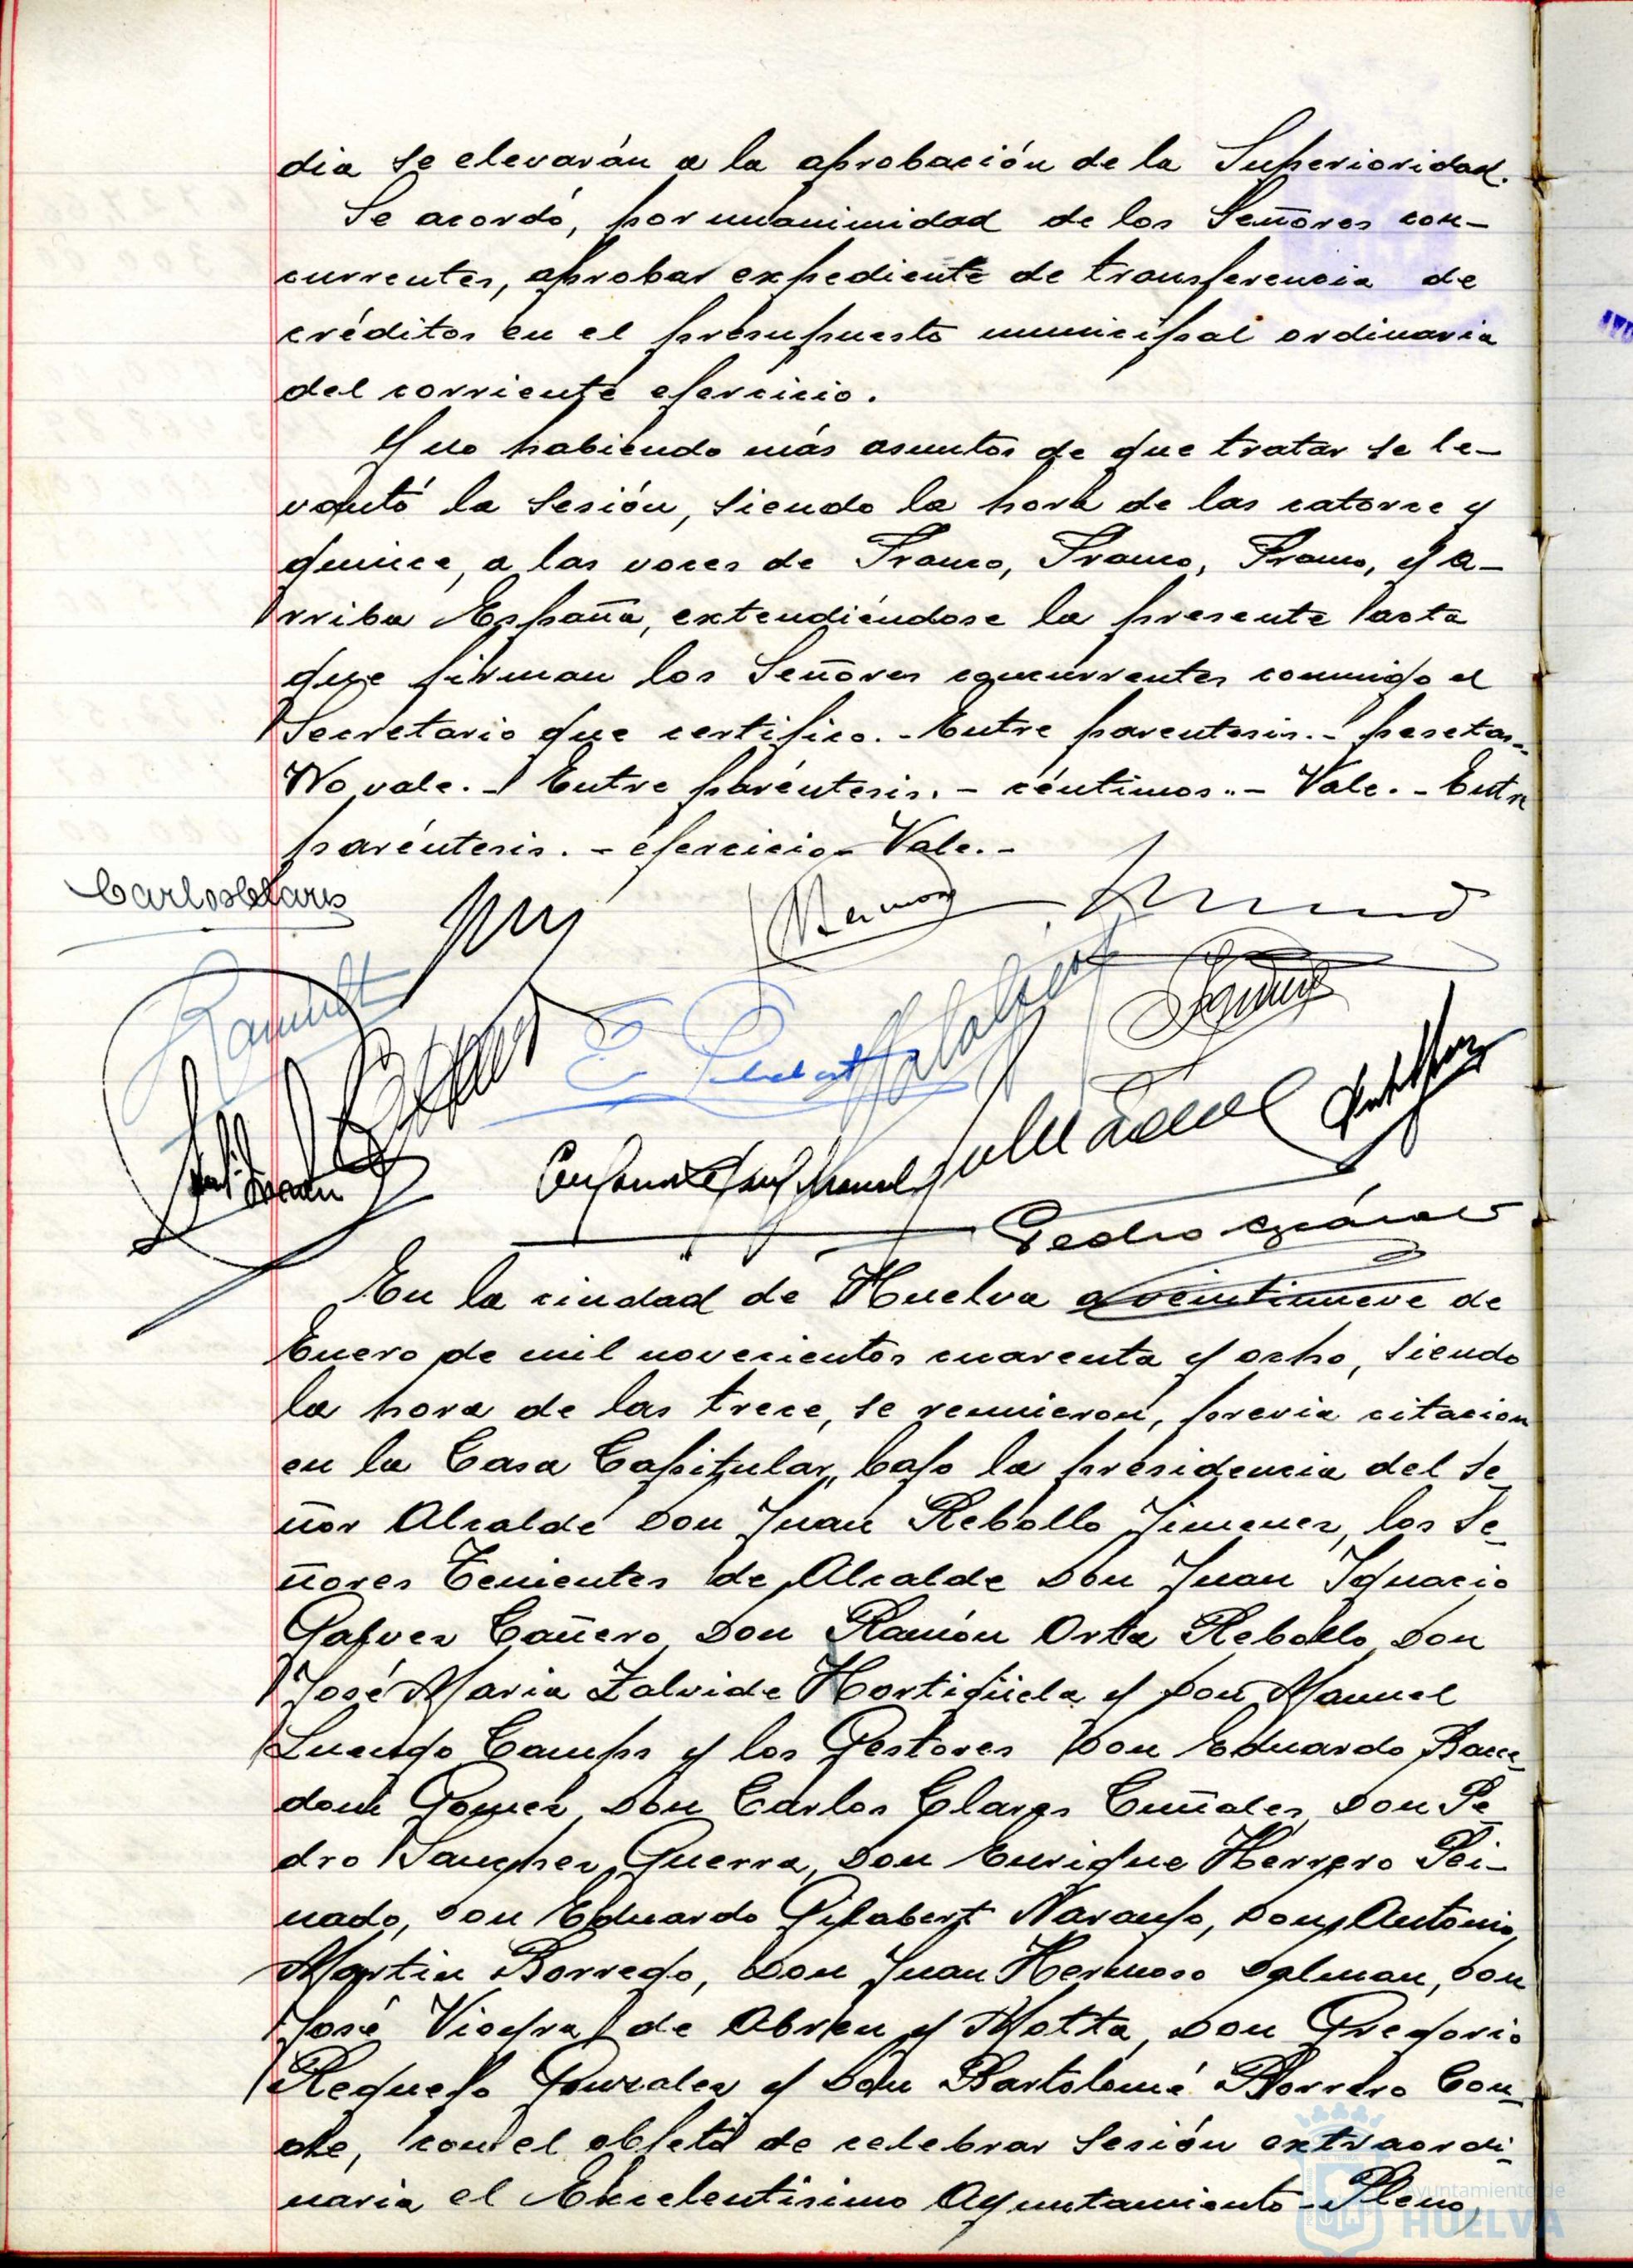 dia se elevarán a la aprobación de la Superioridad.
Se acordó, por unanimidad de los Señores con-
currentes, aprobar expediente de transferencia de
créditos en el presupuesto municipal ordinario
del corriente ejercicio.
Y no habiendo más asuntos de que tratar se le-
vantó la sesión, siendo la hora de las catorce y
quince, a las voces de Franco, Franco, Franco, y A-
rriba España, extendiéndose la presente acta
que firman los Señores concurrentes conmigo el
Secretario que certifico. - Entre parentesis. - pesetas -
No vale. - Entre paréntesis. - céntimos. - Vale. - Entre
paréntesis. - ejercicio - Vale. -
Carlos Clares
En la ciudad de Huelva a veintinueve de
Enero de mil novecientos cuarenta y ocho, siendo
la hora de las trece, se reunieron, previa citacion
en la Casa Capitular, bajo la presidencia del Se-
ñor Alcalde Don Juan Rebollo Jimenez, los Se-
ñores Tenientes de Alcalde Don Juan Ignacio
Galvez Cañero, Don Ramón Orta Rebollo, Don
José Maria Zalvide Hortigüela y Don Manuel
Luengo Camps y los Gestores Don Eduardo
Gomez, Don Carlos Clares Don Pe-
dro Sanchez Guerra, Don Enrique Herrero Pei-
nado, Don Eduardo Gilabert Naranjo, Don Antonio
Martin Borrego, Don Juan Hermoso Don
José Vieyra de Abreu y Motta, Don Gregorio
Requejo Gonzalez y Don Bartolomé Borrero Con-
de, con el objeto de celebrar sesión extraordi-
naria el Excelentisimo Ayuntamiento - Pleno,
Ayuntamiento de
HUELVA